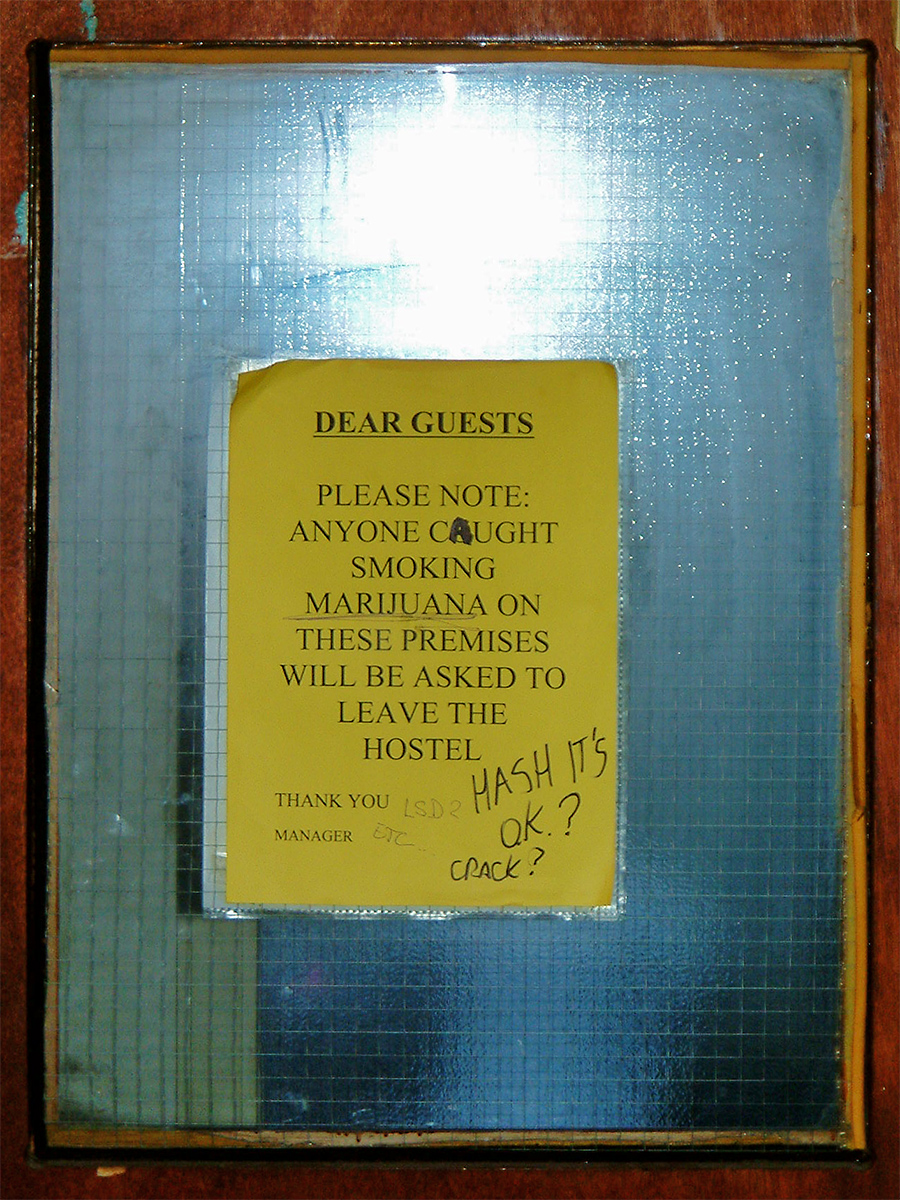 DEAR GUESTS
PLEASE NOTE:
ANYONE CAUGHT
SMOKING
MARIJUANA ON
THESE PREMISES
WILL BE ASKED TO
LEAVE THE
HOSTEL
THANK YOU
MANAGER
HASH IT'S
O.K.?
CRACK?
LSD?
ETC...